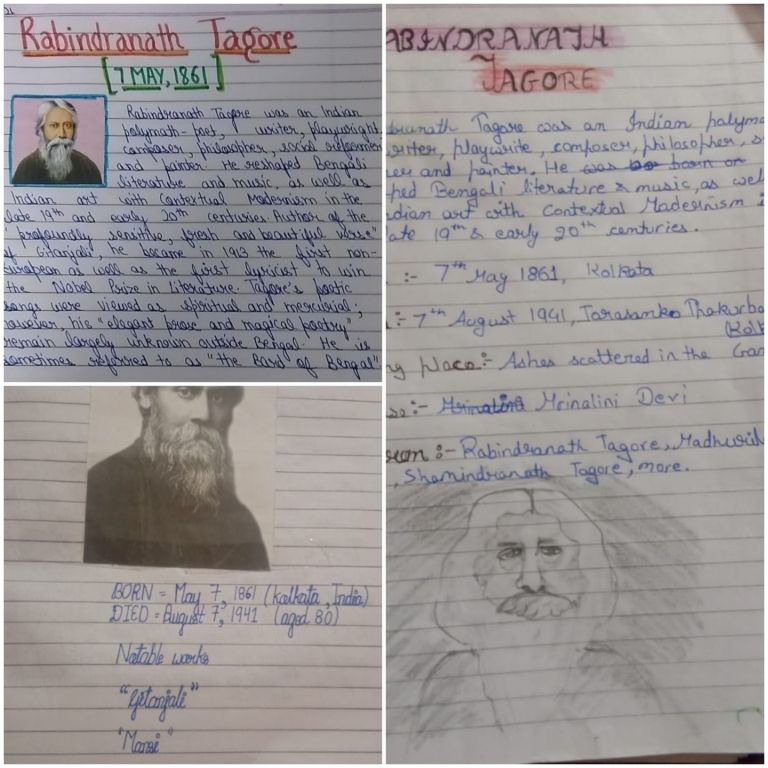 Rabindranath Tagore
[7 MAY, 1861]
Rabindranath Tagore was an Indian
polymath - poet, writer, playwright,
composer, philosopher, social reformer
and painter. He reshaped Bengali
literature and music, as well as
Indian art with Contextual Modernism in the
late 19th and early 20th centuries. Author of the
"profoundly sensitive, fresh and beautiful verse"
of Gitanjali, he became in 1913 the first non-
european as well as the first lyricist to win
the Nobel Prize in Literature. Tagore's poetic
songs were viewed as spiritual and mercurial;
however, his "elegant prose and magical poetry"
remain largely unknown outside Bengal. He is
sometimes referred to as "the Bard of Bengal"
BORN = May 7, 1861 (Kolkata, India)
DIED = August 7, 1941 (aged 80)
Notable works
"Gitanjali"
ABINDRANATH
TAGORE
dranath Tagore was an Indian polyma
writer, playwrite, composer, philosopher, s
er and painter. He was born on
ped Bengali literature & music, as wel
dian art with Contextual Madernism i
ate 19th & early 20th centuries.
:- 7th May 1861, Kolkata
:- 7th August 1941, Thakurba
(Kolk
ng :- Ashes scattered in the Gan
se:- Mrinalini Devi
ren :- Rabindranath Tagore,
, Shamindranath Tagore, more.